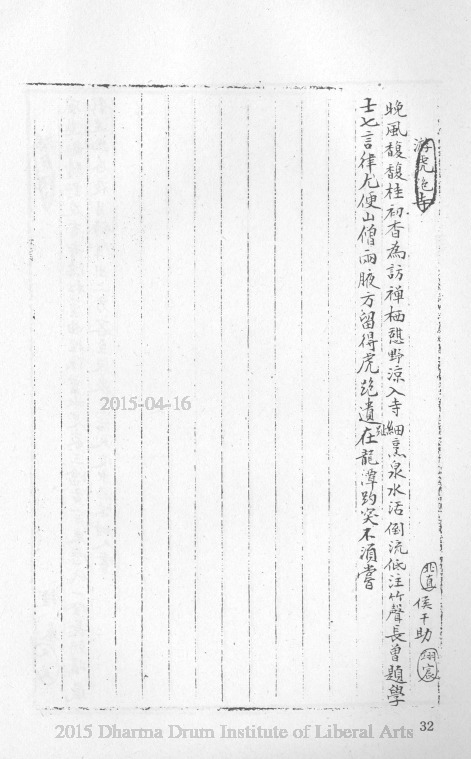 游虎跑寺
北直 侯于助 翊宸
晚風馥馥桂初香為訪禪栖憩野涼入寺細烹泉水活倒流低注竹聲長曾題學
士七言律尤便山僧兩腋方留得虎跑遺趾在龍潭趵突不須嘗
2015-04-16
2015 Dharma Drum Institute of Liberal Arts
32